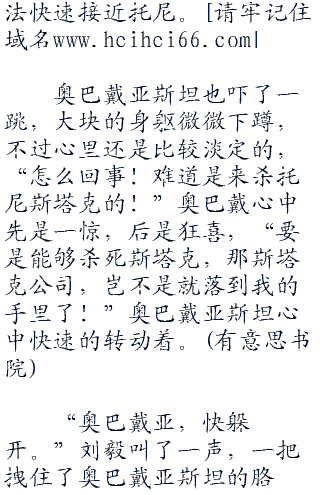 法快速接近托尼。[请牢记住
域名www.hcihci66.com|
奥巴戴亚斯坦也吓了一
跳，大块的身躯微微下蹲，
不过心里还是比较淡定的，
“怎么回事！难道是来杀托
尼斯塔克的！”奥巴戴心中
先是一惊，后是狂喜，“要
是能够杀死斯塔克，那斯塔
克公司，岂不是就落到我的
手里了！”奥巴戴亚斯坦心
中快速的转动着。(有意思书
院)
“奥巴戴亚，快躲
开。”刘毅叫了一声，一把
拽住了奥巴戴亚斯坦的胳